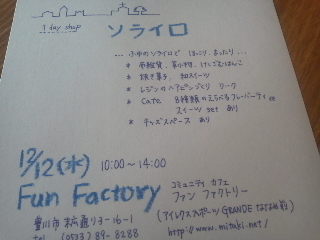 1 day shop
ソライロ
... ふゆのソライロで ほっこり、まったり ...
* 布雑貨、革小物、けしごむはんこ
* 焼き菓子、和スイーツ
* レジンのヘアピンづくり ワーク
* Cafe 8種類のえらべるフレーバーティー
スイーツ set あり
* キッズスペース あり
12/12(水) 10:00〜14:00
Fun Factory
コミュニティ カフェ
ファン ファクトリー
豊川市 末広通り3-16-1
(アイレクススポーツ GRANDE ななめ前)
tel (0533) 89-8288
http://www.mitaki.net/